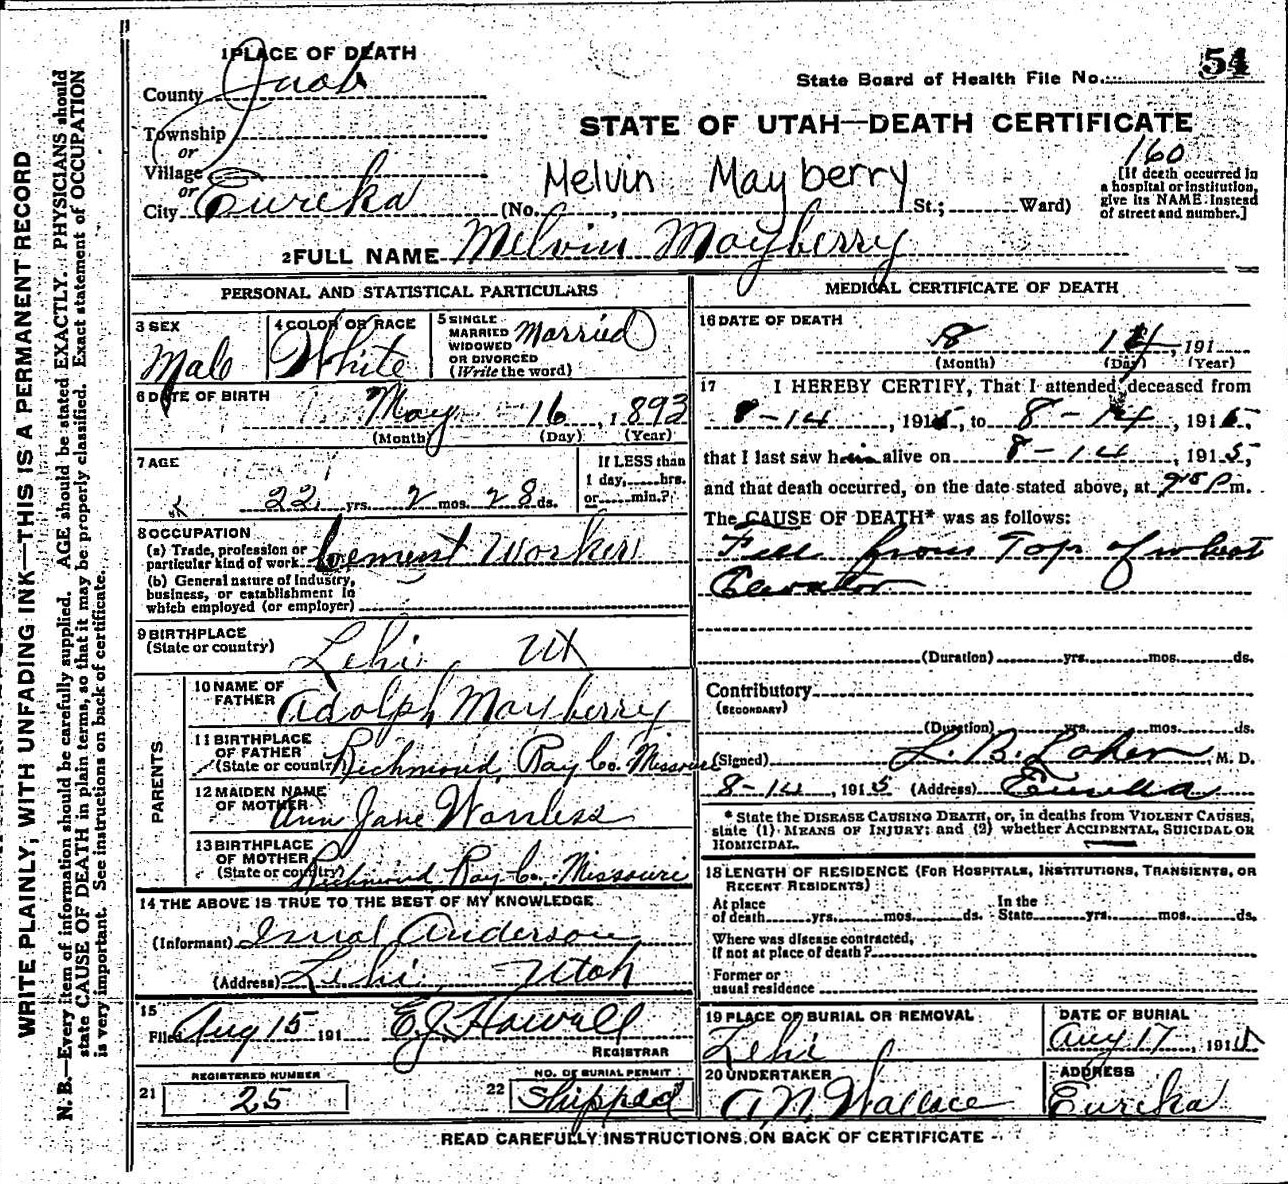 WRITE PLAINLY, WITH UNFADING INK—THIS IS A PERMANENT RECORD
N. B.—Every item of information should be carefully supplied. AGE should be stated EXACTLY. PHYSICIANS should
state CAUSE OF DEATH in plain terms, so that it may be properly classified. Exact statement of OCCUPATION
is very important. See instructions on back of certificate.
1 PLACE OF DEATH
State Board of Health File No. 54
County Juab
STATE OF UTAH—DEATH CERTIFICATE
Township
or
Village
or
City Eureka
Melvin Mayberry
(No. , St.; Ward)
160
[If death occurred in
a hospital or institution,
give its NAME instead
of street and number.]
2 FULL NAME Melvin Mayberry
PERSONAL AND STATISTICAL PARTICULARS
3 SEX
Male
4 COLOR OR RACE
White
5 SINGLE
MARRIED
WIDOWED
OR DIVORCED
(Write the word)
Married
6 DATE OF BIRTH
May 16, 1893
(Month) (Day) (Year)
7 AGE
22 yrs. 2 mos. 28 ds.
If LESS than
1 day, hrs.
or min.?
8 OCCUPATION
(a) Trade, profession or
particular kind of work Cement Worker
(b) General nature of Industry,
business, or establishment in
which employed (or employer)
9 BIRTHPLACE
(State or country)
Lehi Ut
PARENTS
10 NAME OF
FATHER
Adolph Mayberry
11 BIRTHPLACE
OF FATHER
(State or country)
Richmond Ray Co. Missouri
12 MAIDEN NAME
OF MOTHER
Ann Jane Wanless
13 BIRTHPLACE
OF MOTHER
(State or country)
Richmond Ray Co. Missouri
14 THE ABOVE IS TRUE TO THE BEST OF MY KNOWLEDGE
(Informant) Anderson
(Address) Lehi, Utah
15
Filed Aug 15 191 E. J. Howell
REGISTRAR
21
REGISTERED NUMBER
25
22
NO. OF BURIAL PERMIT
Shipped
MEDICAL CERTIFICATE OF DEATH
16 DATE OF DEATH
8 14, 191
(Month) (Day) (Year)
17 I HEREBY CERTIFY, That I attended deceased from
8-14, 1915, to 8-14, 1915,
that I last saw him alive on 8-14, 1915,
and that death occurred, on the date stated above, at m.
The CAUSE OF DEATH* was as follows:
Fell from Top of wheat
Elevator
(Duration) yrs. mos. ds.
Contributory
(SECONDARY)
(Duration) yrs. mos. ds.
(Signed) L. B. , M. D.
8-14, 1915 (Address) Eureka
* State the DISEASE CAUSING DEATH, or, in deaths from VIOLENT CAUSES,
state (1) MEANS OF INJURY; and (2) whether ACCIDENTAL, SUICIDAL OR
HOMICIDAL.
18 LENGTH OF RESIDENCE (FOR HOSPITALS, INSTITUTIONS, TRANSIENTS, OR
RECENT RESIDENTS)
At place
of death yrs. mos. ds.
In the
State yrs. mos. ds.
Where was disease contracted,
if not at place of death?
Former or
usual residence
19 PLACE OF BURIAL OR REMOVAL
Lehi
DATE OF BURIAL
Aug 17, 1915
20 UNDERTAKER
A. N. Wallace
ADDRESS
Eureka
READ CAREFULLY INSTRUCTIONS ON BACK OF CERTIFICATE